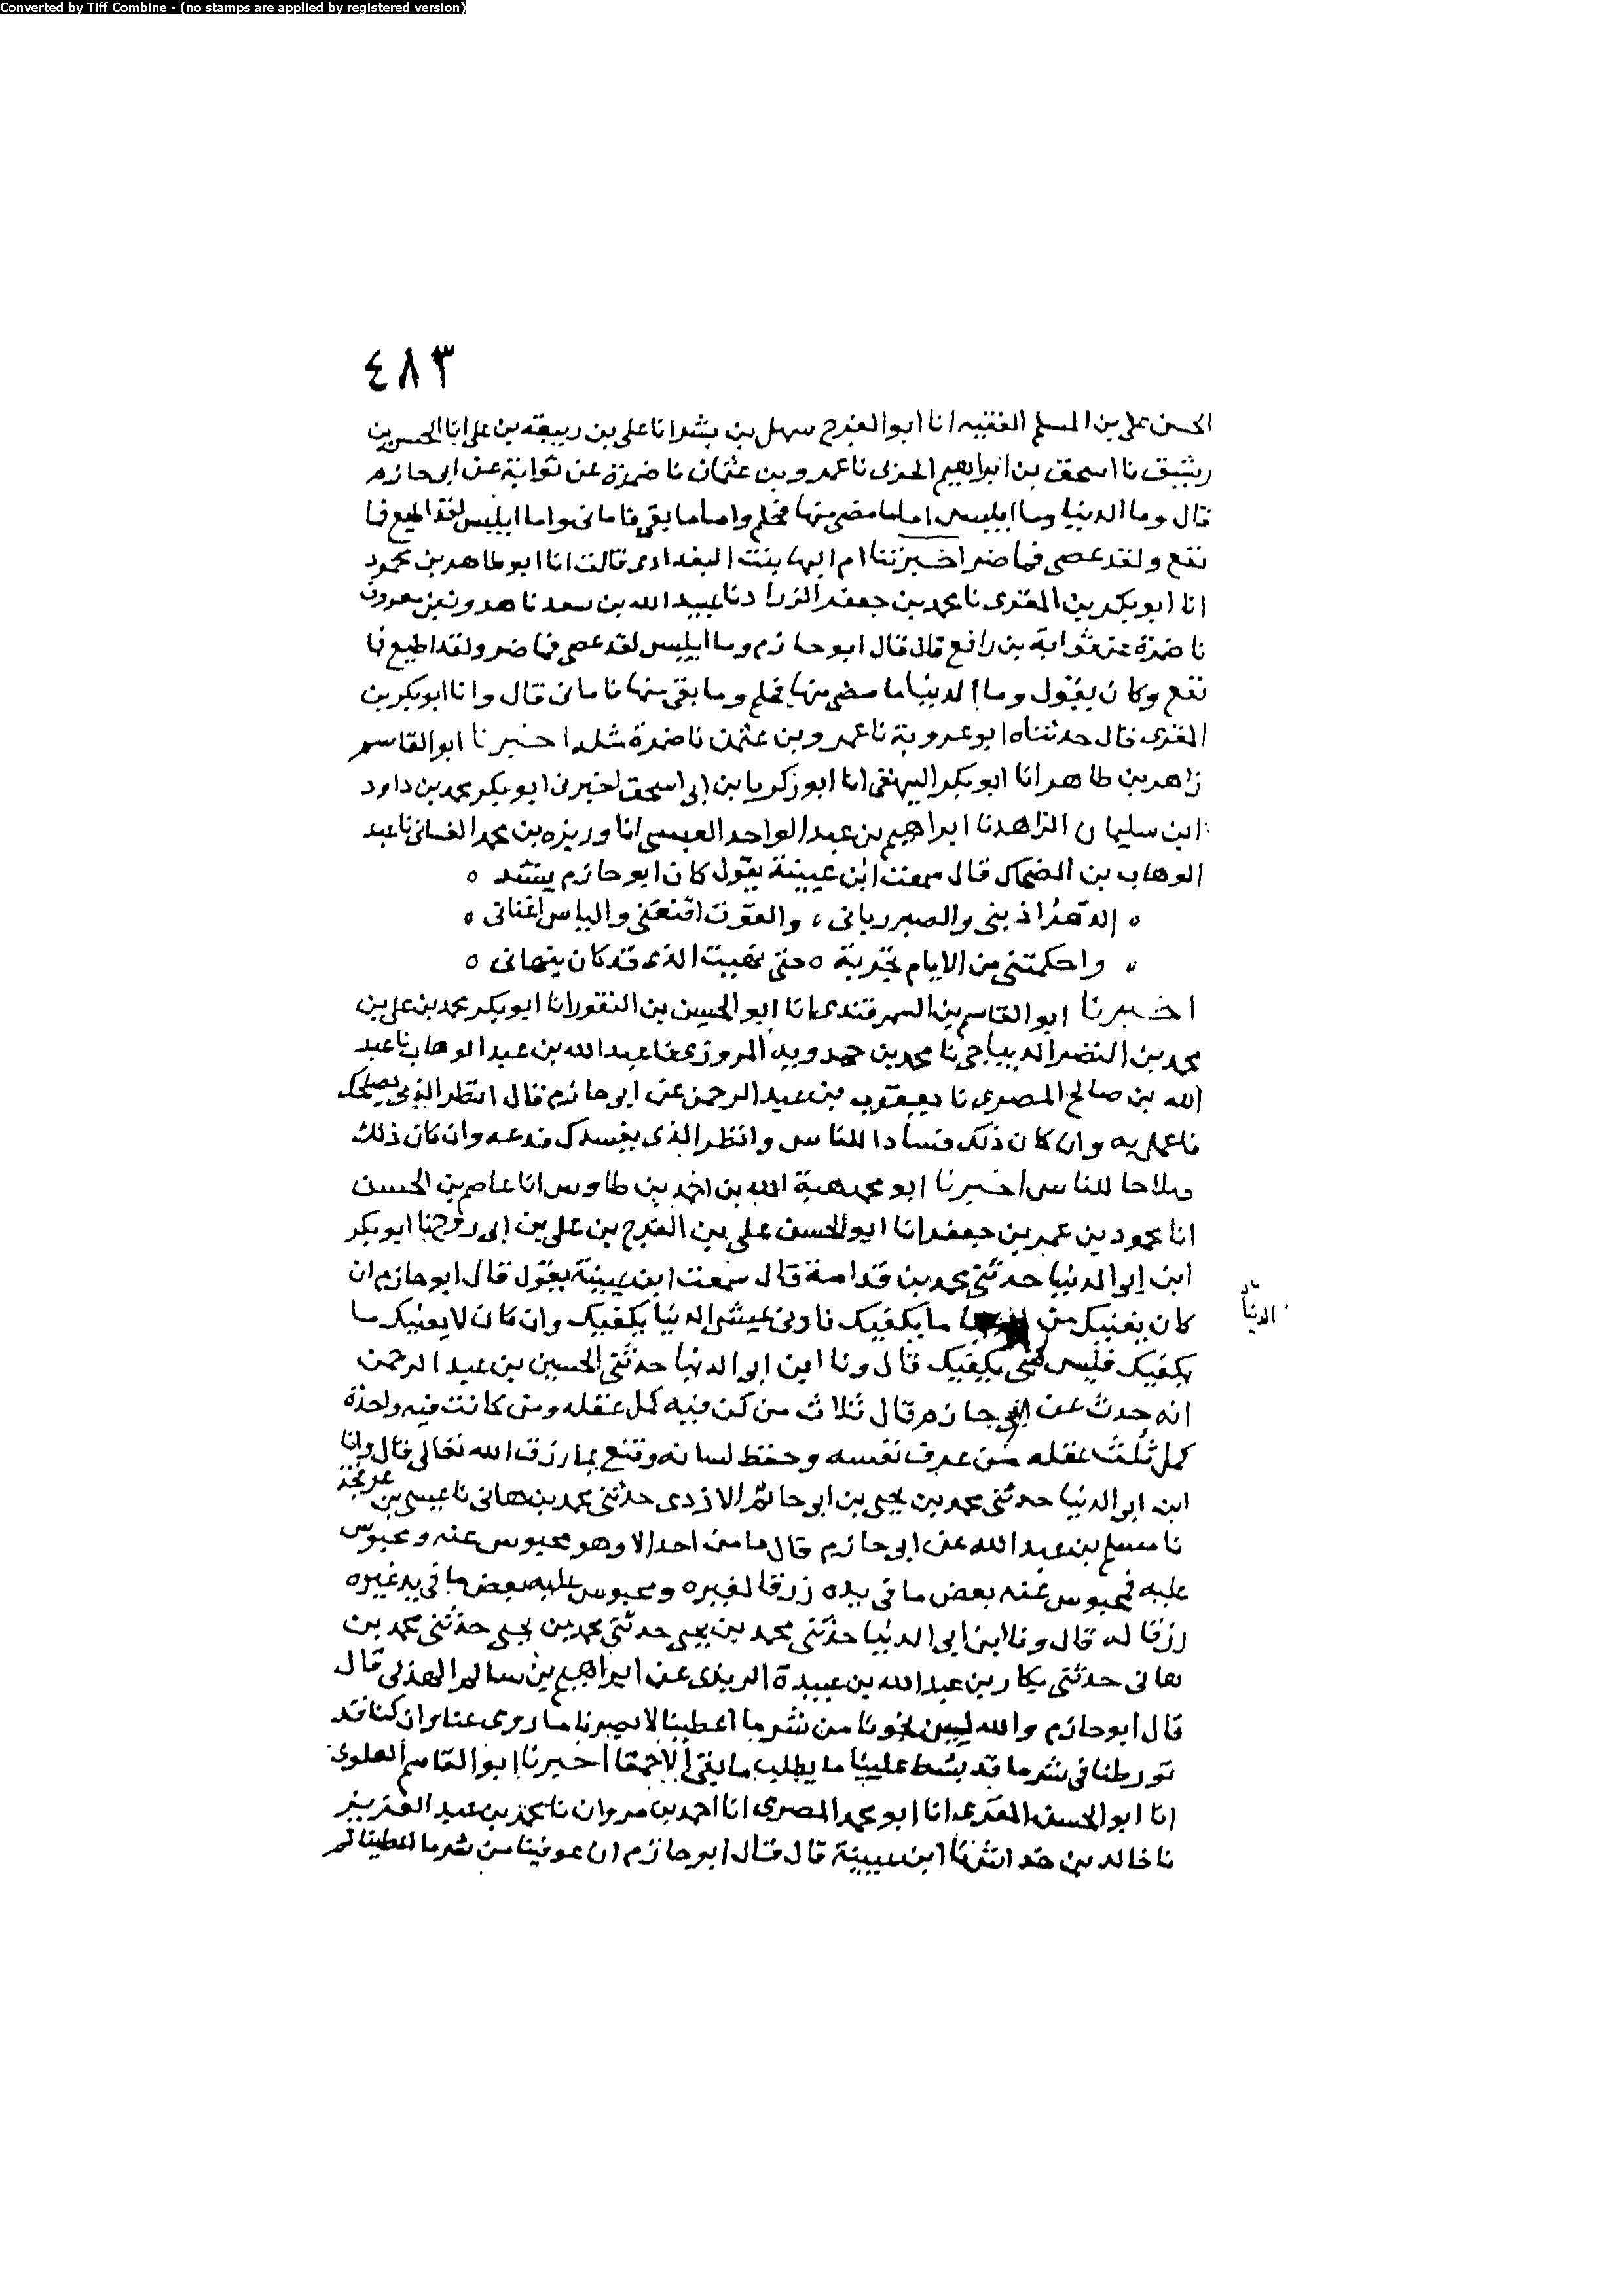 Converted by Tiff Combine - (no stamps are applied by registered version)
٤٨٣
الحسن علي بن المسلم الفقيه انا ابو الفرج سهل بن بشر انا علي بن ربيعة بن علي انا الحسن بن
رشيق نا اسحق بن ابراهيم نا عمرو بن عثمان نا ضمرة عن ثوابة عن ابي حازم
قال وما الدنيا وما ابليس اما ما مضى منها فحلم واما ما بقي فاماني واما ابليس لقد اطيع فما
نفع ولقد عصى فما ضر اخبرتنا ام البها بنت البغدادي قالت انا ابو طاهر بن محمود
انا ابو بكر بن المقرى نا محمد بن جعفر الزراد نا عبيد الله بن سعد نا هرون بن معروف
نا ضمرة عن ثوابة بن رافع قال قال ابو حازم وما ابليس لقد عصي فما ضر ولقد اطيع فما
نفع وكان يقول وما الدنيا ما مضى منها فحلم وما بقي منها فاماني قال وانا ابو بكر بن
المقرى قال حدثناه ابو عروبة نا عمرو بن عثمن نا ضمرة مثله اخبرنا ابو القاسم
زاهر بن طاهر انا ابو بكر البيهقي انا ابو زكريا بن ابي اسحق اخبرني ابو بكر محمد بن داود
ابن سليمان الزاهد نا ابراهيم بن عبد الواحد العبسي انا وريزه بن محمد الغساني نا عبد
الوهاب بن الضحاك قال سمعت ابن عيينة يقول كان ابو حازم ينشد ه
ه الدهر اذبني والصبر رباني ، والقوت اقنعني والياس اغناني ه
ه واحكمتني من الايام تجربة ه حتى نهيت الذي قد كان ينهاني ه
اخبرنا ابو القاسم بن السمرقندي انا ابو الحسين بن النقور انا ابو بكر محمد بن علي بن
محمد بن النضر الديباجي نا محمد بن حمدويه المروزي نا عبد الله بن عبد الوهاب نا عبد
الله بن صالح المصري نا يعقوب بن عبد الرحمن عن ابي حازم قال انظر الذي يصلحك
فاعمل به وان كان ذلك فسادا للناس وانظر الذي يفسدك فدعه وان كان ذلك
صلاحا للناس اخبرنا ابو محمد هبة الله بن احمد بن طاوس انا عاصم بن الحسن
انا محمود بن عمر بن جعفر انا ابو الحسن علي بن الفرج بن علي بن ابي روح نا ابو بكر
ابن ابي الدنيا حدثني محمد بن قدامة قال سمعت ابن عيينة يقول قال ابو حازم ان
كان يغنيك من ما يكفيك فادنى عيش الدنيا يكفيك وان كان لا يغنيك ما
الدنيا
يكفيك فليس شي يكفيك قال ونا ابن ابي الدنيا حدثني الحسين بن عبد الرحمن
انه حدث عن ابي حازم قال ثلاث من كن فيه كمل عقله ومن كانت فيه واحدة
كمل ثلث عقله من عرف نفسه وحفظ لسانه وقنع بما رزقه الله تعالى قال وانا
ابن ابي الدنيا حدثني محمد بن يحيى بن ابي حاتم الازدي حدثني محمد بن هاني نا عيسى بن
نا مسلم بن عبد الله عن ابي حازم قال ما من احد الا وهو محبوس عنه ومحبوس
عليه فمحبوس عنه بعض ما في يده رزقا لغيره ومحبوس عليه بعض ما في يد غيره
رزقا له قال ونا ابن ابي الدنيا حدثني محمد بن يحيى حدثني محمد بن يحيى حدثني محمد بن
هاني حدثني بكار بن عبد الله بن عبيدة الربذي عن ابراهيم بن سالم الهذلي قال
قال ابو حازم والله ليين نجونا من شر ما اعطينا لا يضرنا ما زوي عنا وان كنا قد
تورطنا في شر ما قد بسط علينا ما يطلب ما بقي الا حمقا اخبرنا ابو القاسم العلوي
انا ابو الحسن المقري انا ابو محمد المصري انا احمد بن مروان نا محمد بن عبد العزيز
نا خالد بن خداش نا ابن عيينة قال قال ابو حازم ان عوفينا من شر ما اعطينا لم